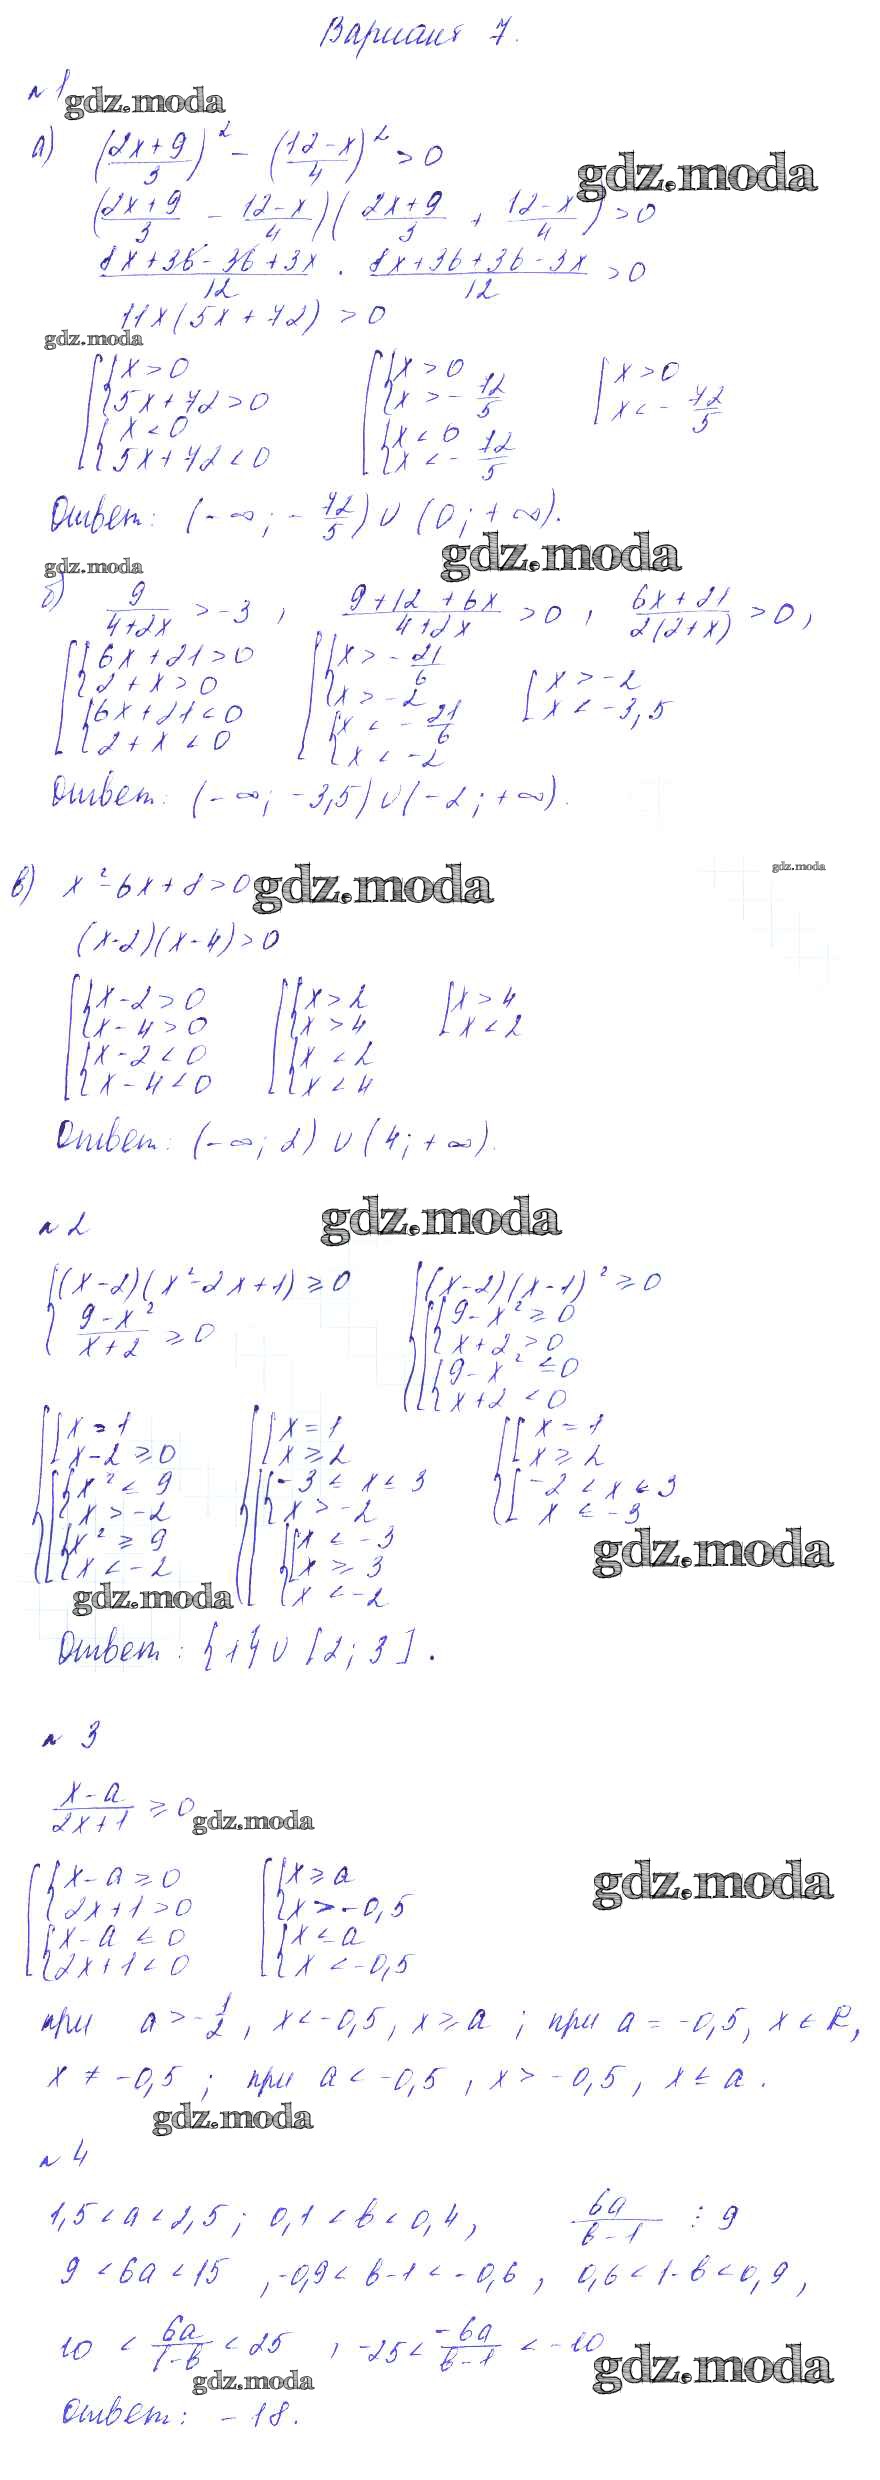 Вариант 7.
№1
gdz.moda
а) ((2x+9)/3)² - ((12-x)/4)² > 0
gdz.moda
((2x+9)/3 - (12-x)/4)((2x+9)/3 + (12-x)/4) > 0
(8x+36-36+3x)/12 · (8x+36+36-3x)/12 > 0
11x(5x+72) > 0
gdz.moda
[ { x>0 5x+72>0 { x<0 5x+72<0 [ { x>0 x>-72/5 { x<0 x<-72/5 [ x>0 x<-72/5
Ответ: (-∞; -72/5) ∪ (0; +∞).
gdz.moda
gdz.moda
б) 9/(4+2x) > -3, (9+12+6x)/(4+2x) > 0, (6x+21)/(2(2+x)) > 0,
[ { 6x+21>0 2+x>0 { 6x+21<0 2+x<0 [ { x>-21/6 x>-2 { x<-21/6 x<-2 [ x>-2 x<-3,5
Ответ: (-∞; -3,5) ∪ (-2; +∞).
в) x²-6x+8>0
gdz.moda
gdz.moda
(x-2)(x-4)>0
[ { x-2>0 x-4>0 { x-2<0 x-4<0 [ { x>2 x>4 { x<2 x<4 [ x>4 x<2
Ответ: (-∞; 2) ∪ (4; +∞).
gdz.moda
№2
{ (x-2)(x²-2x+1)≥0 (9-x²)/(x+2)≥0 { (x-2)(x-1)²≥0 [ { 9-x²≥0 x+2>0 { 9-x²≤0 x+2<0
{ [ x=1 x-2≥0 [ { x²≤9 x>-2 { x²≥9 x<-2 { [ x=1 x≥2 [ { -3≤x≤3 x>-2 { [ x≤-3 x≥3 x<-2 { [ x=1 x≥2 [ -2<x≤3 x≤-3
gdz.moda
gdz.moda
Ответ: {1} ∪ [2; 3].
№3
(x-a)/(2x+1) ≥ 0
gdz.moda
gdz.moda
[ { x-a≥0 2x+1>0 { x-a≤0 2x+1<0 [ { x≥a x>-0,5 { x≤a x<-0,5
при a>-1/2, x<-0,5, x≥a; при a=-0,5, x∈R,
x≠-0,5; при a<-0,5, x>-0,5, x≤a.
gdz.moda
№4
1,5<a<2,5; 0,1<b<0,4, 6a/(b-1) ⋮ 9
9<6a<15, -0,9<b-1<-0,6, 0,6<1-b<0,9,
10 < 6a/(1-b) < 25, -25 < -6a/(b-1) < -10
gdz.moda
gdz.moda
Ответ: -18.